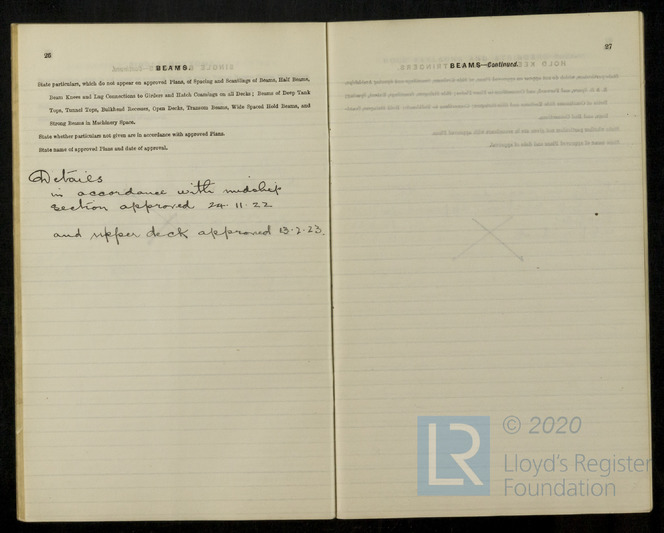 26
BEAMS.
State particulars, which do not appear on approved Plans, of Spacing and Scantlings of Beams, Half Beams,
Beam Knees and Lug Connections to Girders and Hatch Coamings on all Decks; Beams of Deep Tank
Tops, Tunnel Tops, Bulkhead Recesses, Open Decks, Transom Beams, Wide Spaced Hold Beams, and
Strong Beams in Machinery Space.
State whether particulars not given are in accordance with approved Plans.
State name of approved Plans and date of approval.
Details
in accordance with midship
section approved 24.11.22
and upper deck approved 13.2.23.
27
BEAMS—Continued.
LR
© 2020
Lloyd's Register
Foundation